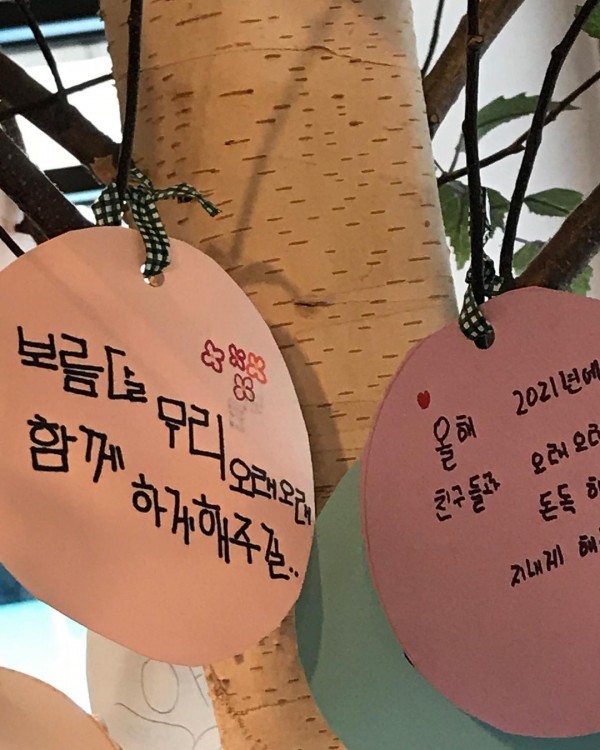 보름달 우리 오래오래
함께 하게해주길..
올해 2021년에
친구들과 오래오래
돈독
지내게